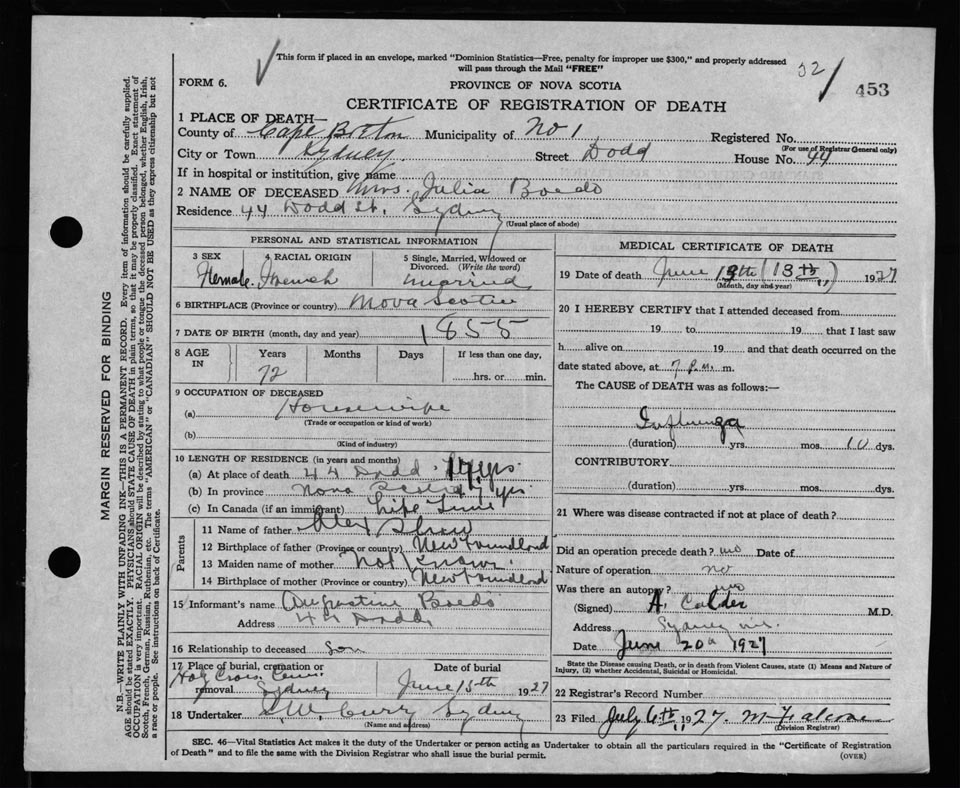 This form if placed in an envelope, marked "Dominion Statistics—Free, penalty for improper use $300," and properly addressed
will pass through the Mail "FREE"
32
453
FORM 6.
PROVINCE OF NOVA SCOTIA
CERTIFICATE OF REGISTRATION OF DEATH
1 PLACE OF DEATH—
County of Cape Breton Municipality of No 1 Registered No.
(For use of Registrar General only)
City or Town Sydney Street Dodd House No. 44
If in hospital or institution, give name
2 NAME OF DECEASED Mrs. Julia Boedo
Residence 44 Dodd St. Sydney
(Usual place of abode)
PERSONAL AND STATISTICAL INFORMATION
3 SEX Female
4 RACIAL ORIGIN French
5 Single, Married, Widowed or Divorced. (Write the word) married
6 BIRTHPLACE (Province or country) Nova Scotia
7 DATE OF BIRTH (month, day and year) 1855
8 AGE IN Years Months Days If less than one day,
72 hrs. or min.
9 OCCUPATION OF DECEASED
(a) Housewife
(Trade or occupation or kind of work)
(b)
(Kind of industry)
10 LENGTH OF RESIDENCE (in years and months)
(a) At place of death 44 Dodd 17 yrs.
(b) In province Nova Scotia yrs
(c) In Canada (if an immigrant) Life Time
Parents
11 Name of father Alex Shaw
12 Birthplace of father (Province or country) Newfoundland
13 Maiden name of mother not known
14 Birthplace of mother (Province or country) Newfoundland
15 Informant's name Augustine Boedo
Address 44 Dodd
16 Relationship to deceased Son
17 Place of burial, cremation or removal Holy Cross Cem. Sydney
Date of burial June 15th 1927
18 Undertaker Curry Sydney
(Name and address)
MEDICAL CERTIFICATE OF DEATH
19 Date of death June 13th (13th) 1927
(Month, day and year)
20 I HEREBY CERTIFY that I attended deceased from
19 to 19 that I last saw
h alive on 19 and that death occurred on the
date stated above, at 7 P.M. m.
The CAUSE of DEATH was as follows:—
Influenza
(duration) yrs. mos. 10 dys.
CONTRIBUTORY
(duration) yrs. mos. dys.
21 Where was disease contracted if not at place of death?
Did an operation precede death? no Date of
Nature of operation no
Was there an autopsy? no
(Signed) A. Calder M.D.
Address Sydney
Date June 20 1927
State the Disease causing Death, or in death from Violent Causes, state (1) Means and Nature of
Injury, (2) whether Accidental, Suicidal or Homicidal.
22 Registrar's Record Number
23 Filed July 6th 1927
(Division Registrar)
SEC. 46—Vital Statistics Act makes it the duty of the Undertaker or person acting as Undertaker to obtain all the particulars required in the "Certificate of Registration
of Death" and to file the same with the Division Registrar who shall issue the burial permit.
(OVER)
MARGIN RESERVED FOR BINDING
N.B.—WRITE PLAINLY WITH UNFADING INK—THIS IS A PERMANENT RECORD. Every item of information should be carefully supplied.
AGE should be stated EXACTLY. PHYSICIANS should STATE CAUSE OF DEATH in plain terms, so that it may be properly classified. Exact statement of
OCCUPATION is very important. RACIAL ORIGIN will be described by stating to what people or tongue the deceased person belonged, whether English, Irish,
Scotch, French, German, Russian, Ruthenian, etc. The terms "AMERICAN" or "CANADIAN" SHOULD NOT BE USED as they express citizenship but not
a race or people. See instructions on back of Certificate.